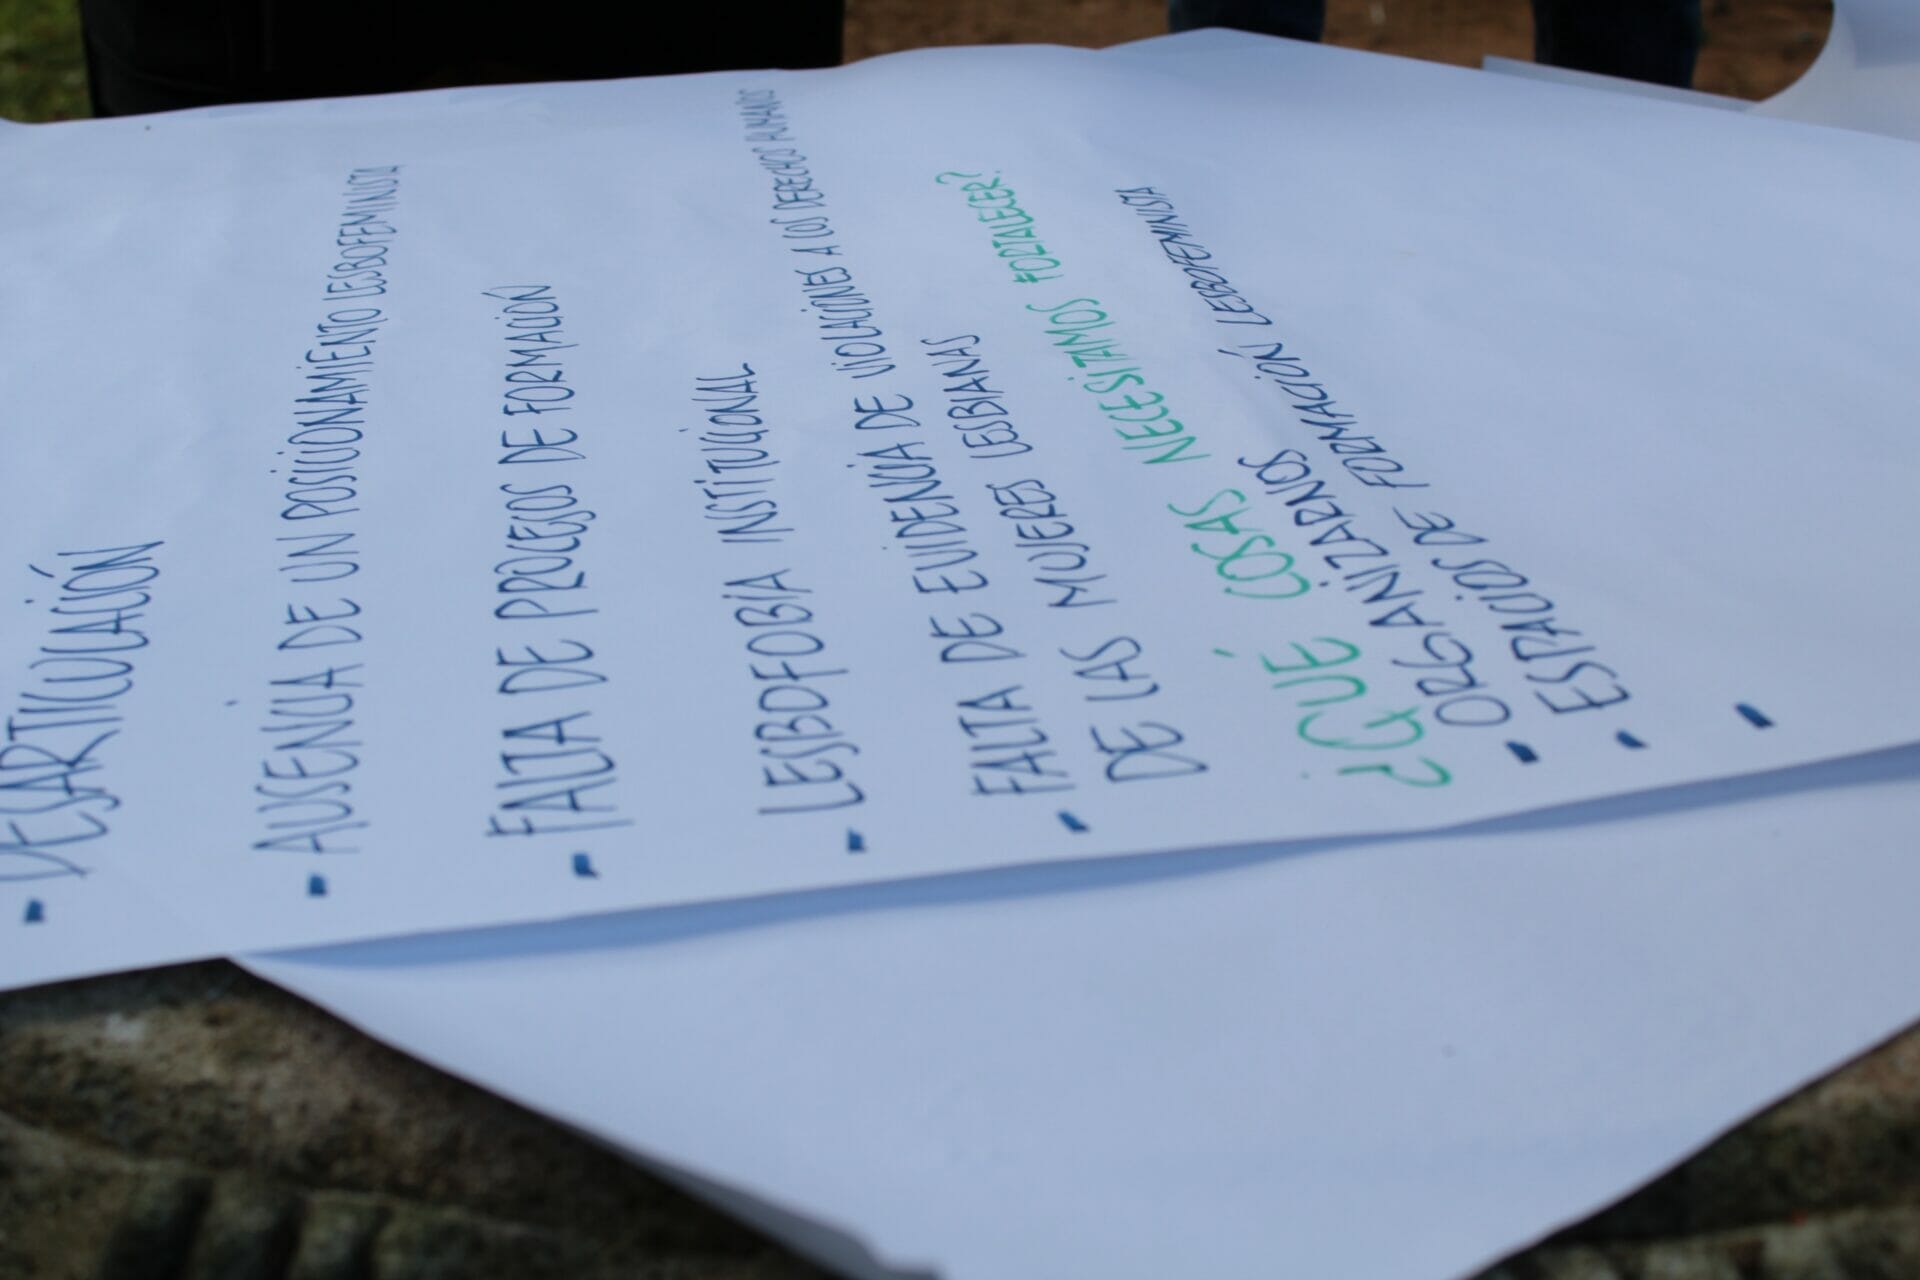 - DESARTICULACIÓN
- AUSENCIA DE UN POSICIONAMIENTO LESBOFEMINISTA
- FALTA DE PROCESOS DE FORMACIÓN
- LESBOFOBIA INSTITUCIONAL
- FALTA DE EVIDENCIA DE VIOLACIONES A LOS DERECHOS HUMANOS
DE LAS MUJERES LESBIANAS
¿QUÉ COSAS NECESITAMOS FORTALECER?
- ORGANIZARNOS
- ESPACIOS DE FORMACIÓN LESBOFEMINISTA
-